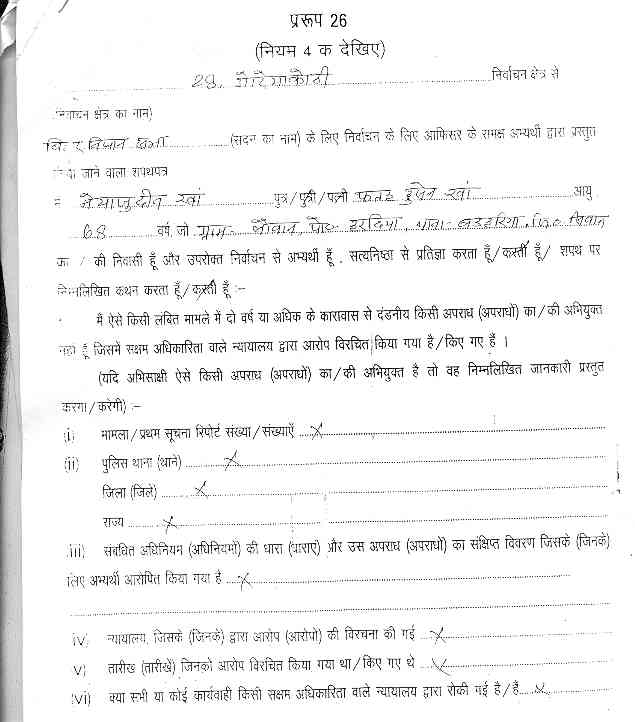 प्ररूप 26
(नियम 4 क देखिए)
28. गोरेयाकोठी निर्वाचन क्षेत्र से
निर्वाचन क्षेत्र का नाम)
विधान सभा (सदन का नाम) के लिए निर्वाचन के लिए आफिसर के समक्ष अभ्यर्थी द्वारा प्रस्तुत
जाने वाला शपथपत्र
खां पुत्र/पुत्री/पत्नी फतह खां आयु
68 वर्ष, जो ग्राम- पो० हरदिया, थाना- जि० सिवान
का / की निवासी हूँ और उपरोक्त निर्वाचन से अभ्यर्थी हूँ , सत्यनिष्ठा से प्रतिज्ञा करता हूँ/करती हूँ/ शपथ पर
निम्नलिखित कथन करता हूँ/करती हूँ :-
मैं ऐसे किसी लंबित मामले में दो वर्ष या अधिक के कारावास से दंडनीय किसी अपराध (अपराधों) का/की अभियुक्त
नहीं हूँ जिसमें सक्षम अधिकारिता वाले न्यायालय द्वारा आरोप विरचित किया गया है/किए गए हैं ।
(यदि अभिसाक्षी ऐसे किसी अपराध (अपराधों) का/की अभियुक्त है तो वह निम्नलिखित जानकारी प्रस्तुत
करेगा/करेगी) :-
(i) मामला/प्रथम सूचना रिपोर्ट संख्या/संख्याएँ X
(ii) पुलिस थाना (थाने) X
जिला (जिले) X
राज्य X
iii) संबंधित अधिनियम (अधिनियमों) की धारा (धाराए) और उस अपराध (अपराधों) का संक्षिप्त विवरण जिसके (जिनके)
लिए अभ्यर्थी आरोपित किया गया है X
iv) न्यायालय, जिसके (जिनके) द्वारा आरोप (आरोपों) की विरचना की गई X
v) तारीख (तारीखें) जिनको आरोप विरचित किया गया था/किए गए थे X
(vi) क्या सभी या कोई कार्यवाही किसी सक्षम अधिकारिता वाले न्यायालय द्वारा रोकी गई है/हैं X